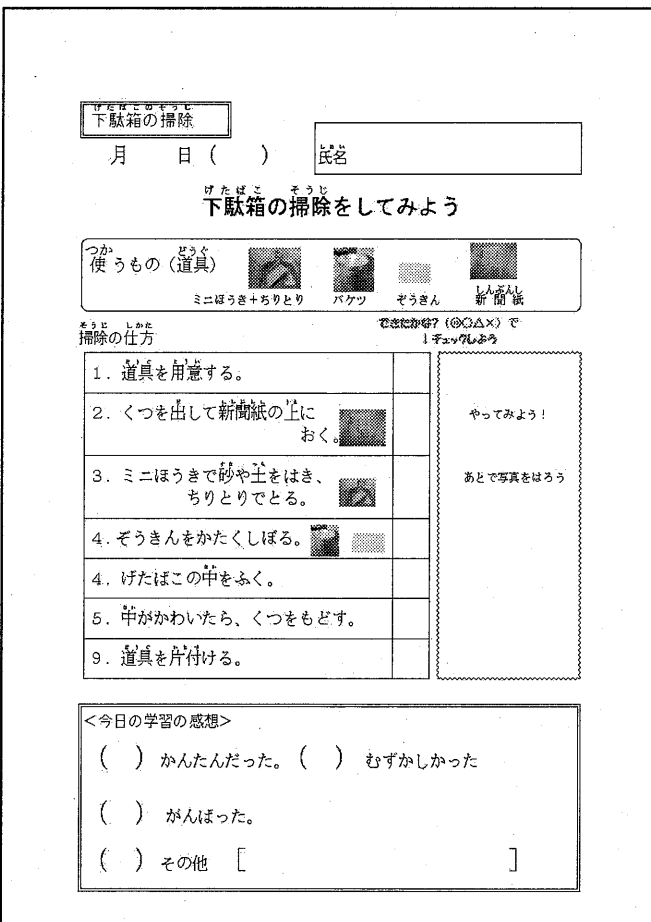 下駄箱の掃除
月 日( )
氏名
下駄箱の掃除をしてみよう
使うもの(道具)
ミニほうき+ちりとり バケツ ぞうきん 新聞紙
掃除の仕方
できたかな?(◎○△×)で
チェックしよう
1.道具を用意する。
2.くつを出して新聞紙の上に
おく。
3.ミニほうきで砂や土をはき、
ちりとりでとる。
4.ぞうきんをかたくしぼる。
4.げたばこの中をふく。
5.中がかわいたら、くつをもどす。
9.道具を片付ける。
やってみよう!
あとで写真をはろう
<今日の学習の感想>
( ) かんたんだった。( ) むずかしかった
( ) がんばった。
( ) その他 [ ]